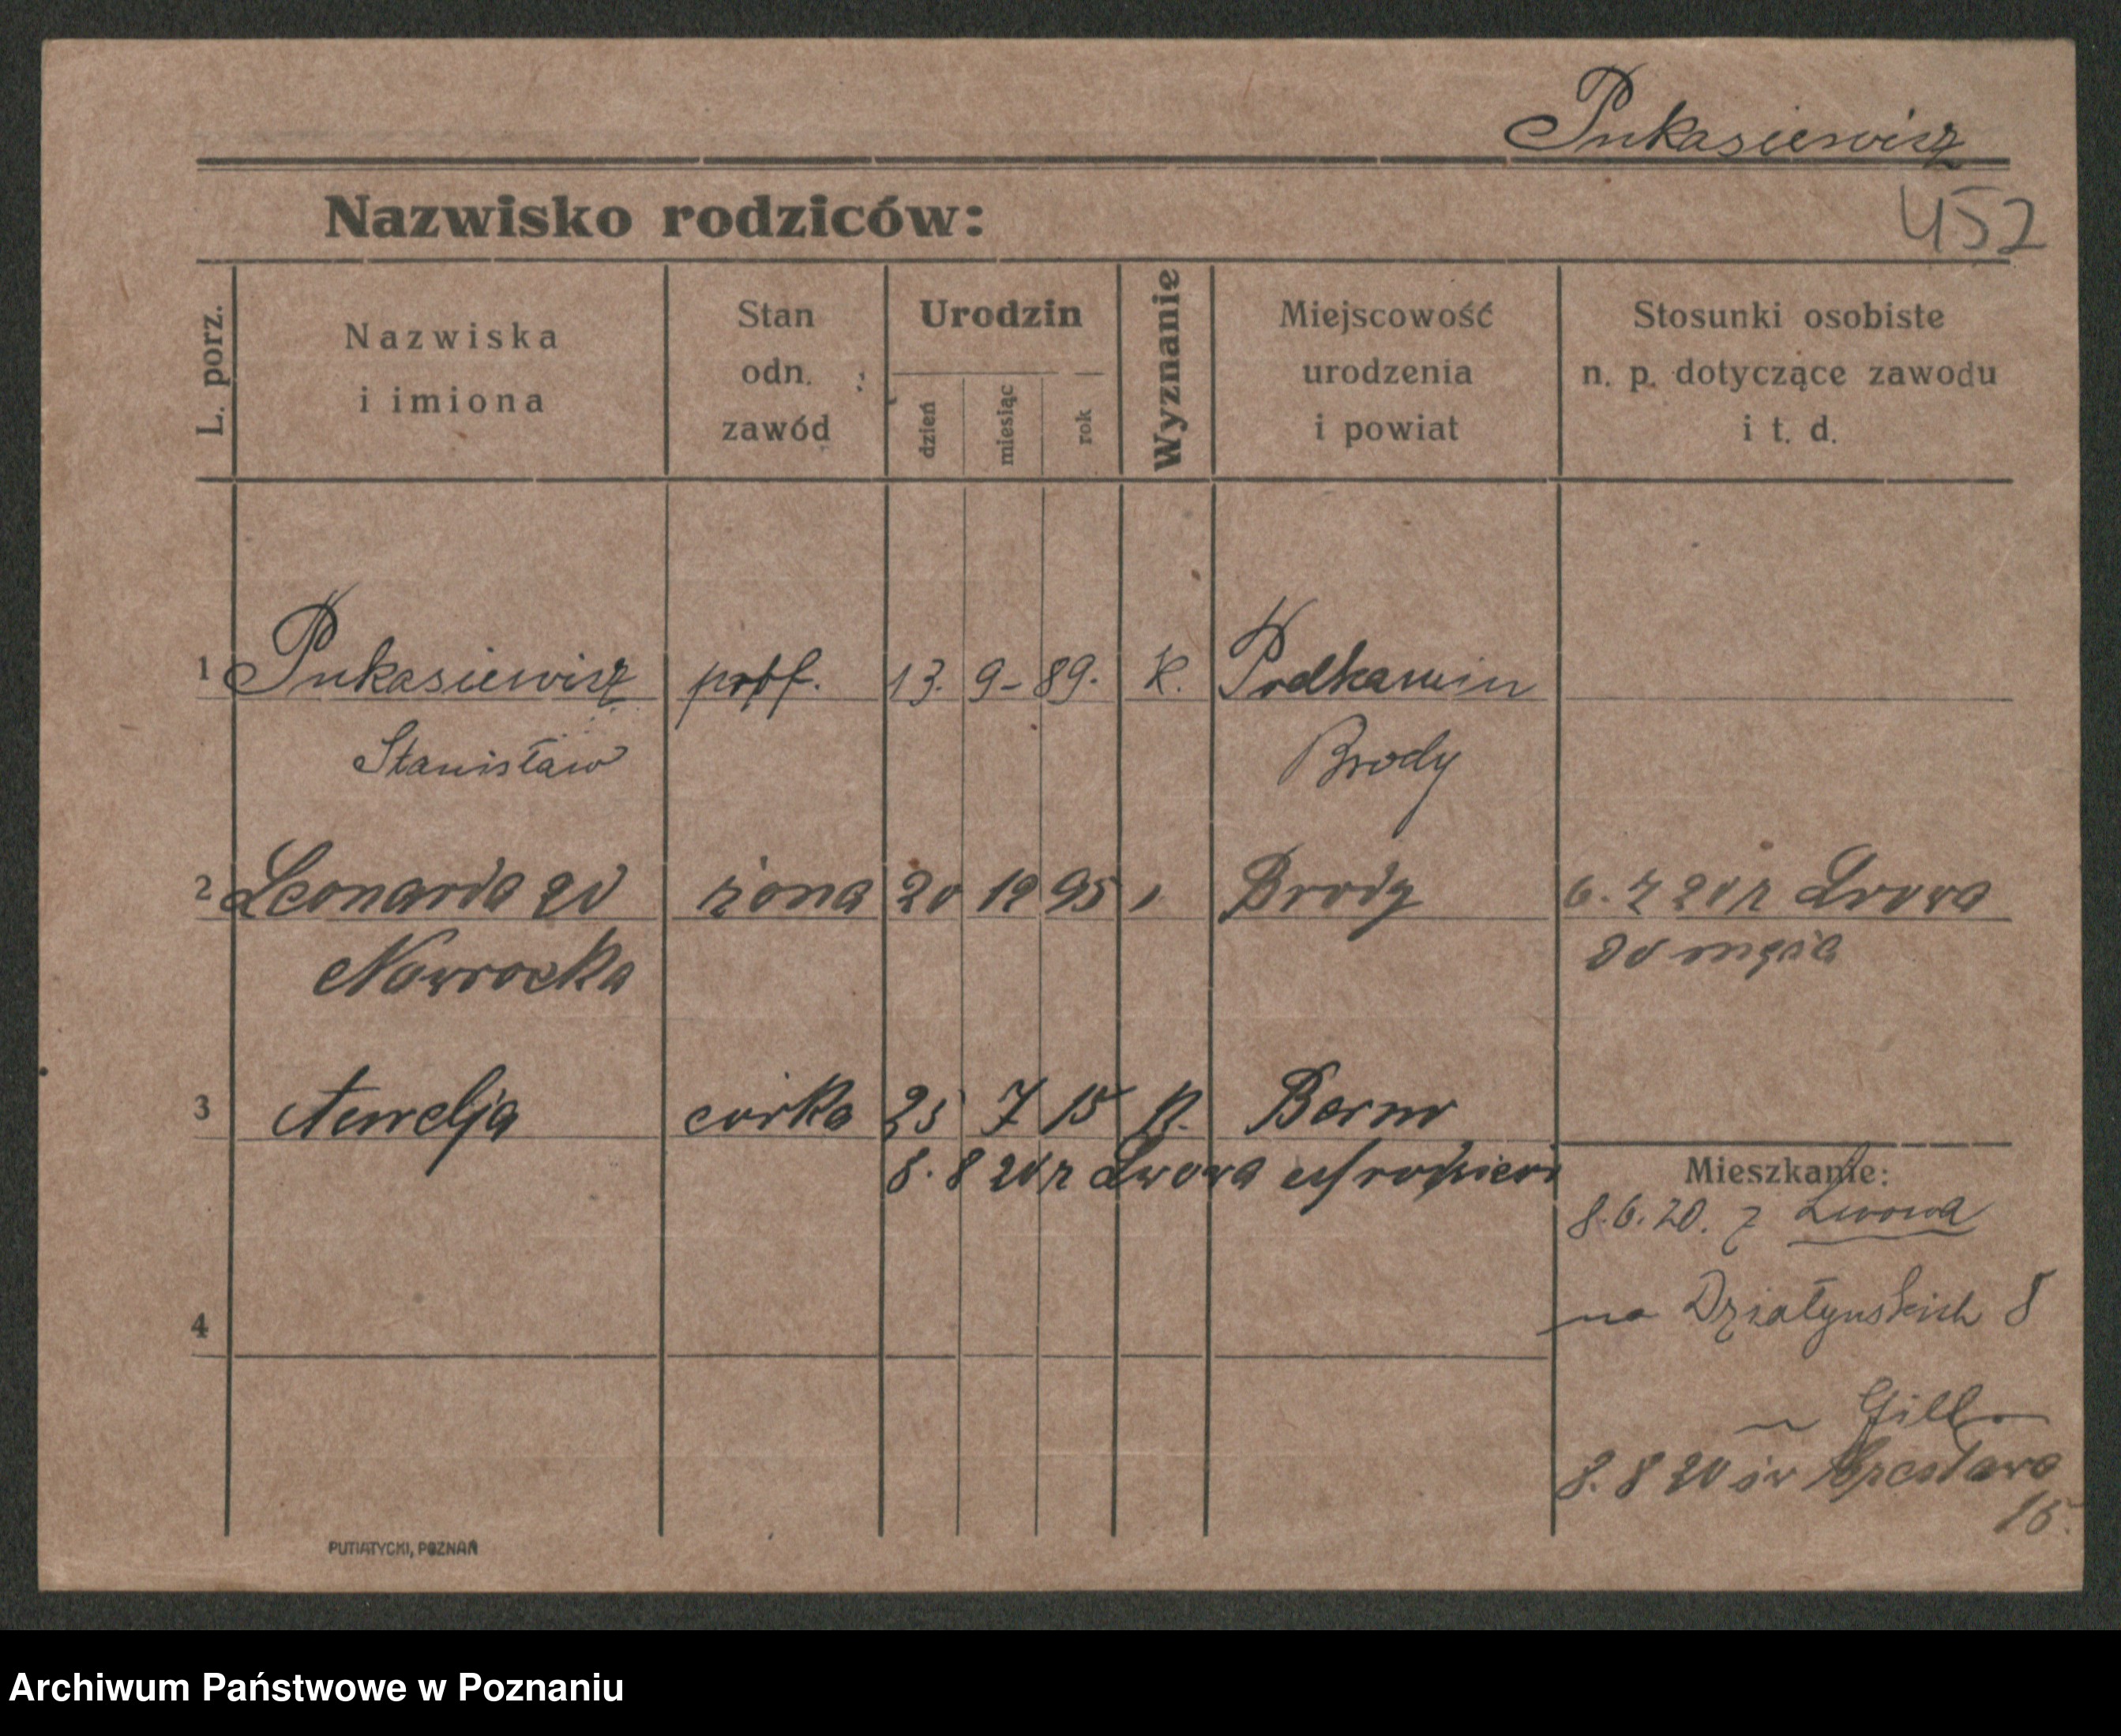 Pukasiewisz
452
Nazwisko rodziców:
L. porz.
Nazwiska
i imiona
Stan
odn.
zawód
Urodzin
dzień
miesiąc
rok
Wyznanie
Miejscowość
urodzenia
i powiat
Stosunki osobiste
n. p. dotyczące zawodu
i t. d.
1 Pukasiewisz prof. 13. 9- 89. K. Podkamin
Stanisław Brody
2 Leonarda zd żona 20 12 95 " Brody 6. 7 20 r Lwowa
Nawrocka do męża
3 Aurelja córka 25 7 15 k. Berno
8. 8 20 r Lwowa
Mieszkanie:
8.6.20. z Lwowa
na Działyńskich 8
Gill
8. 8 20 św Czesława
15.
4
PUTIATYCKI, POZNAŃ
Archiwum Państwowe w Poznaniu